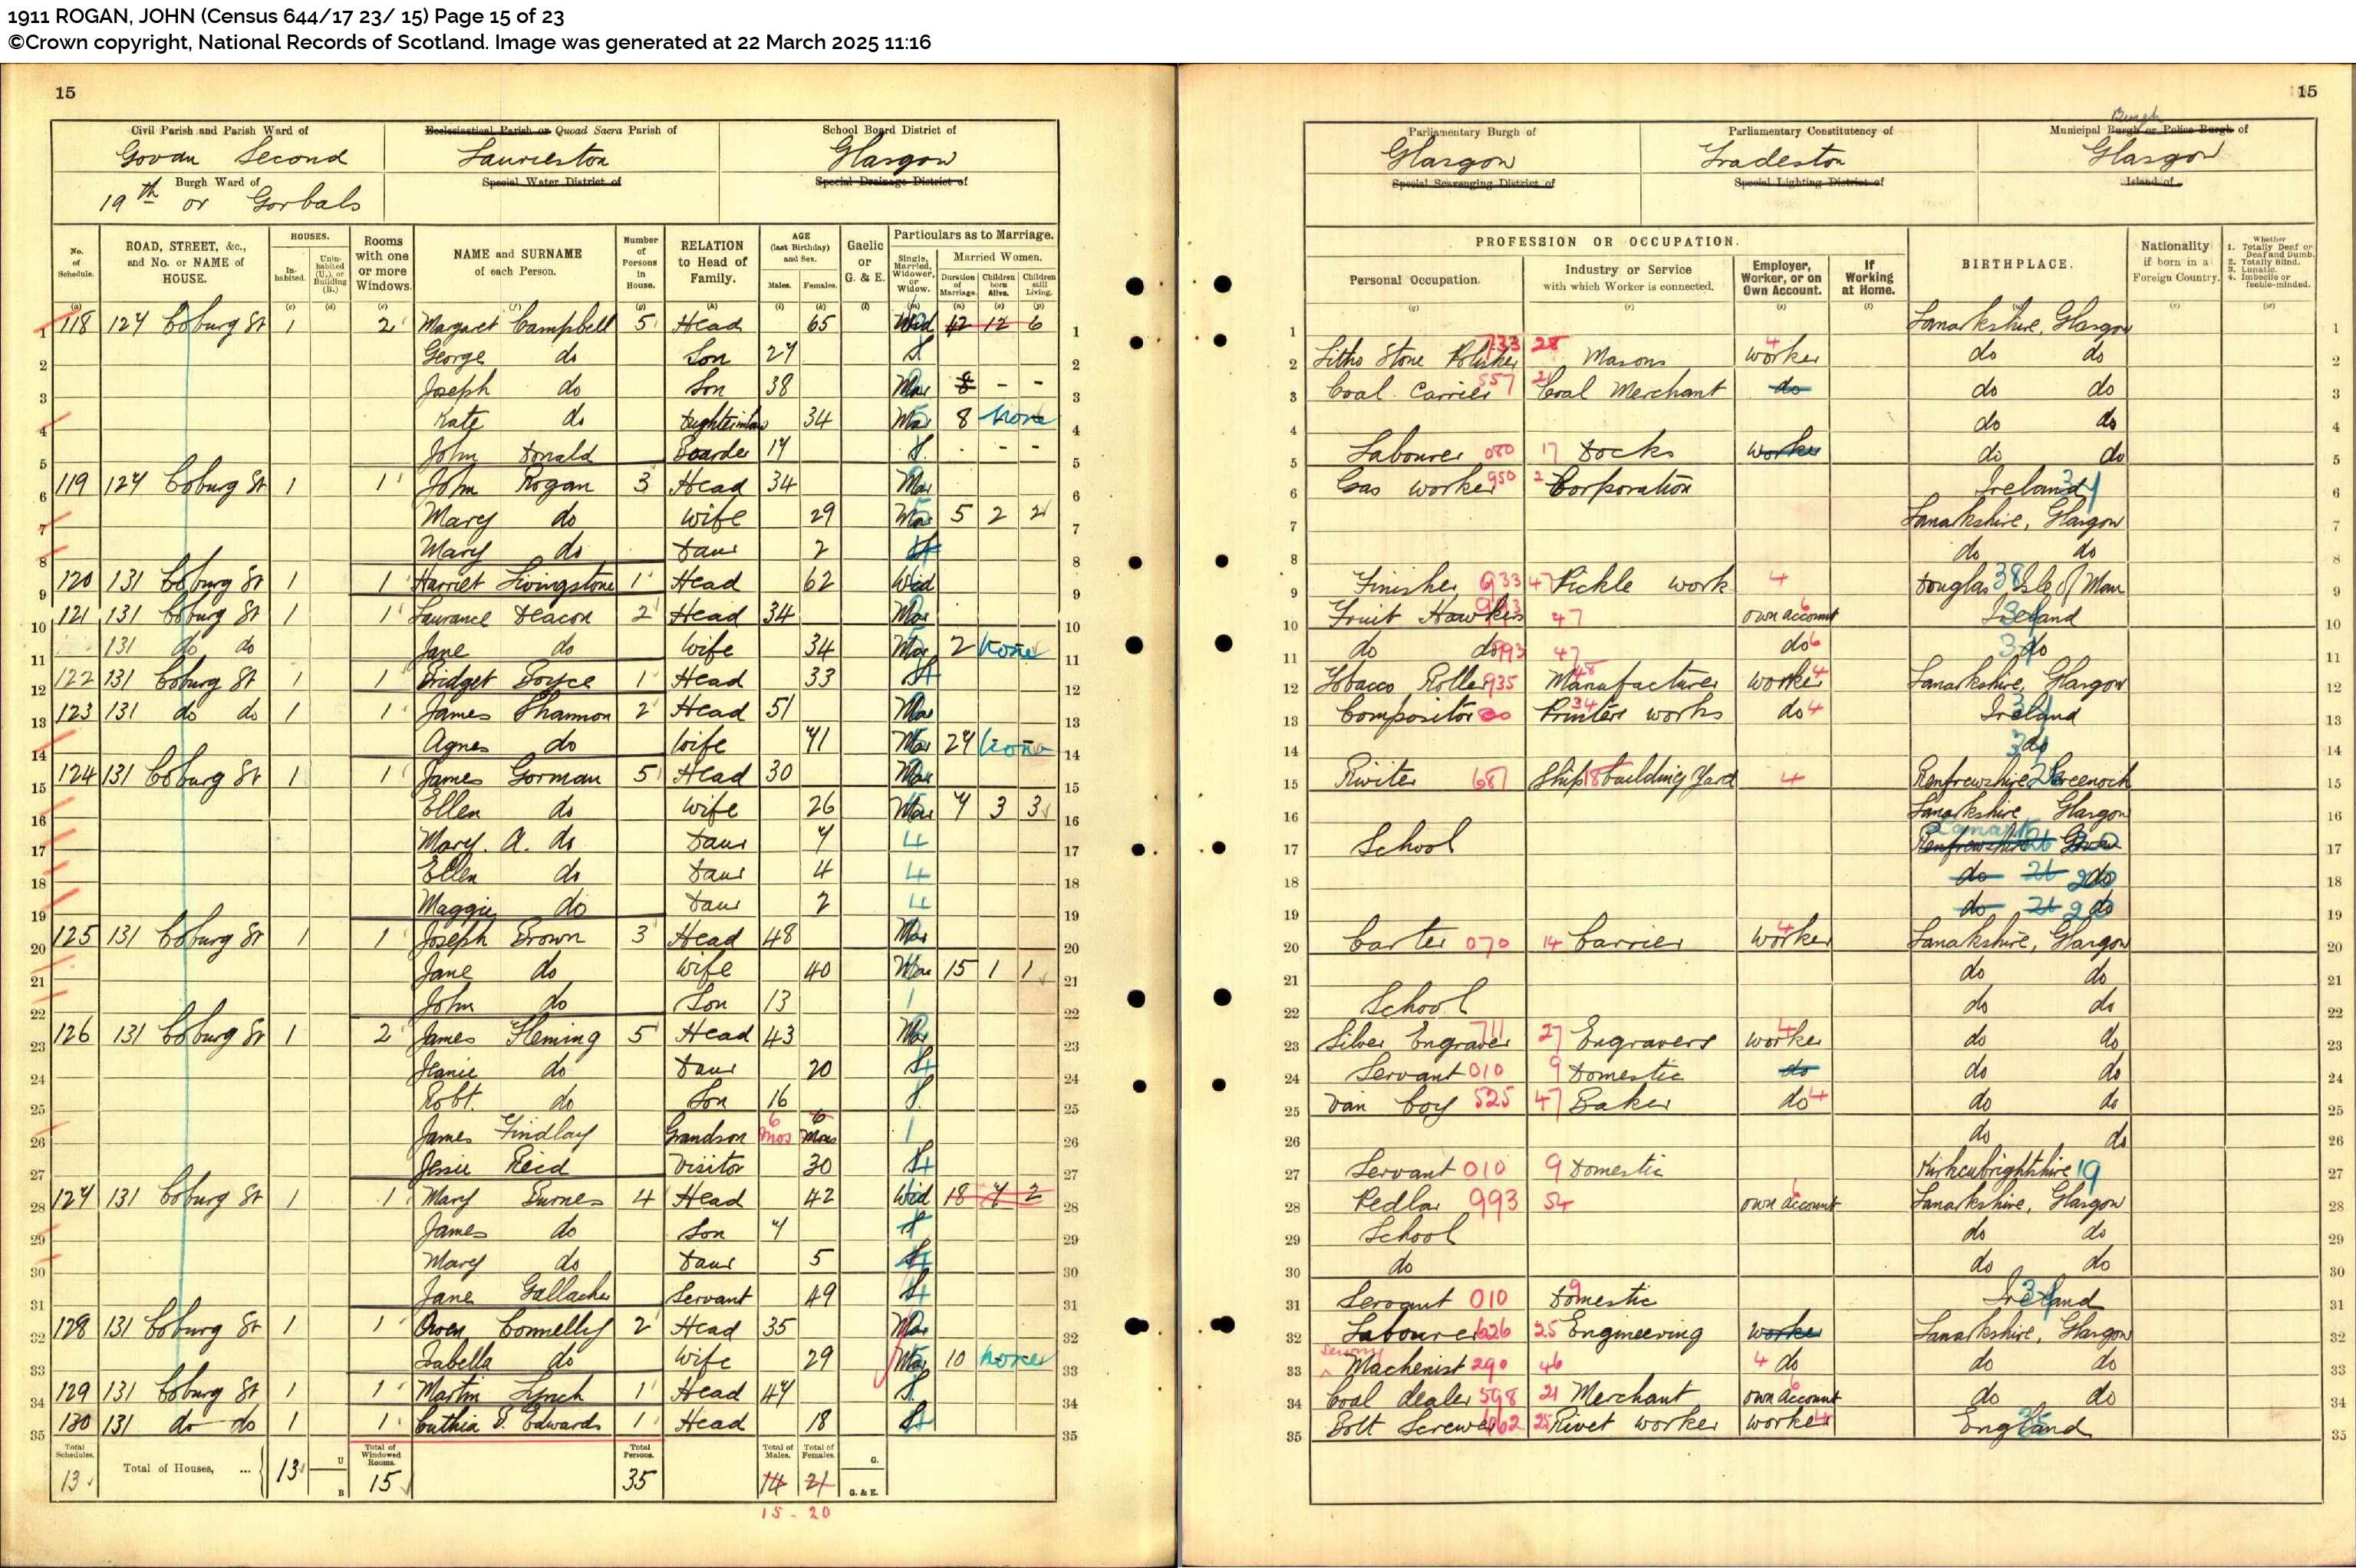 1911 ROGAN, JOHN (Census 644/17 23/ 15) Page 15 of 23
©Crown copyright, National Records of Scotland. Image was generated at 22 March 2025 11:16
15
Civil Parish and Parish Ward of Govan Second
Ecclesiastical Parish or Quoad Sacra Parish of Laurieston
School Board District of Glasgow
Burgh Ward of 19th or Gorbals
Special Water District of
Special Drainage District of
15
Parliamentary Burgh of Glasgow
Parliamentary Constituency of Tradeston
Burgh
Municipal Burgh or Police Burgh of Glasgow
Special Scavenging District of
Special Lighting District of
Island of
No. of Schedule.
ROAD, STREET, &c., and No. or NAME of HOUSE.
HOUSES.
Inhabited.
Uninhabited (U.), or Building (B.)
Rooms with one or more Windows
NAME and SURNAME of each Person.
Number of Persons in House.
RELATION to Head of Family.
AGE (last Birthday) and Sex.
Males.
Females.
Gaelic or G. & E.
Particulars as to Marriage.
Single, Married, Widower, or Widow.
Married Women.
Duration of Marriage.
Children born Alive.
Children still Living.
PROFESSION OR OCCUPATION.
Personal Occupation.
Industry or Service with which Worker is connected.
Employer, Worker, or on Own Account.
If Working at Home.
BIRTHPLACE.
Nationality if born in a Foreign Country.
Whether 1. Totally Deaf or Deaf and Dumb. 2. Totally Blind. 3. Lunatic. 4. Imbecile or feeble-minded.
1 118 127 Coburg St 1 2 Margaret Campbell 5 Head 65 Wid 42 12 6 Lanarkshire, Glasgow
2 George do Son 27 S Litho Stone Polisher 733 28 Masons worker 4 do do
3 Joseph do Son 38 Mar 8 - - Coal Carrier 557 21 Coal Merchant do do do
4 Kate do Daughterinlaw 34 Mar 8 None do do
5 John Donald Boarder 17 S. - - Labourer 080 17 Docks worker do do
6 119 127 Coburg St 1 1 John Rogan 3 Head 34 Mar Gas worker 950 2 Corporation Ireland
7 Mary do Wife 29 Mar 5 2 2 Lanarkshire, Glasgow
8 Mary do Daur 2 S do do
9 120 131 Coburg St 1 1 Harriet Livingstone 1 Head 62 Wid Finisher 933 47 Pickle work 4 Douglas 38 Isle of Man
10 121 131 Coburg St 1 1 Laurance Deacon 2 Head 34 Mar Fruit Hawkers 993 47 own account 6 Ireland
11 131 do do Jane do Wife 34 Mar 2 None do do 993 47 do 6 do
12 122 131 Coburg St 1 1 Bridget Boyce 1 Head 33 S Tobacco Roller 935 48 Manufacturer worker 4 Lanarkshire, Glasgow
13 123 131 do do 1 1 James Shannon 2 Head 51 Mar Compositor 34 Printers works do 4 Ireland
14 Agnes do Wife 41 Mar 27 None do
15 124 131 Coburg St 1 1 James Gorman 5 Head 30 Mar Riviter 687 18 Ship building Yard 4 Renfrewshire, Greenock
16 Ellen do Wife 26 Mar 7 3 3 Lanarkshire Glasgow
17 Mary. A. do Daur 7 School Lanark Renfrewshire
18 Ellen do Daur 4 do do
19 Maggie do Daur 2 do do
20 125 131 Coburg St 1 1 Joseph Brown 3 Head 48 Mar Carter 070 14 Carrier worker 4 Lanarkshire, Glasgow
21 Jane do Wife 40 Mar 15 1 1 do do
22 John do Son 13 School do do
23 126 131 Coburg St 1 2 James Fleming 5 Head 43 Mar Silver Engraver 711 27 Engravers worker 4 do do
24 Jeanie do Daur 20 S Servant 010 9 Domestic do do do
25 Robt. do Son 16 S. Van boy 525 47 Baker do 4 do do
26 James Findlay Grandson 6 mos 6 Mons do do
27 Jessie Reid Visitor 30 S Servant 010 9 Domestic Kirkcubrightshire 19
28 127 131 Coburg St 1 1 Mary Burnes 4 Head 42 Wid 18 7 2 Pedlar 993 54 own account Lanarkshire, Glasgow
29 James do Son 7 S School do do
30 Mary do Daur 5 S do do do
31 Jane Gallacher Servant 49 S Servant 010 9 Domestic Ireland
32 128 131 Coburg St 1 1 Owen Connelly 2 Head 35 Mar Labourer 626 25 Engineering worker Lanarkshire, Glasgow
33 Isabella do Wife 29 Mar 10 None Sewing Machenist 290 46 4 do do do
34 129 131 Coburg St 1 1 Martin Lynch 1 Head 47 S. Coal dealer 598 21 Merchant own account 6 do do
35 130 131 do do 1 1 Cuthia P. Edwards 1 Head 18 S Bolt Screwer 662 25 Rivet worker worker 4 England
Total Schedules. 13
Total of Houses, ... 13
U
B
Total of Windowed Rooms. 15
Total Persons. 35
Total of Males. 14
Total of Females. 21
G.
G. & E.
15 - 20